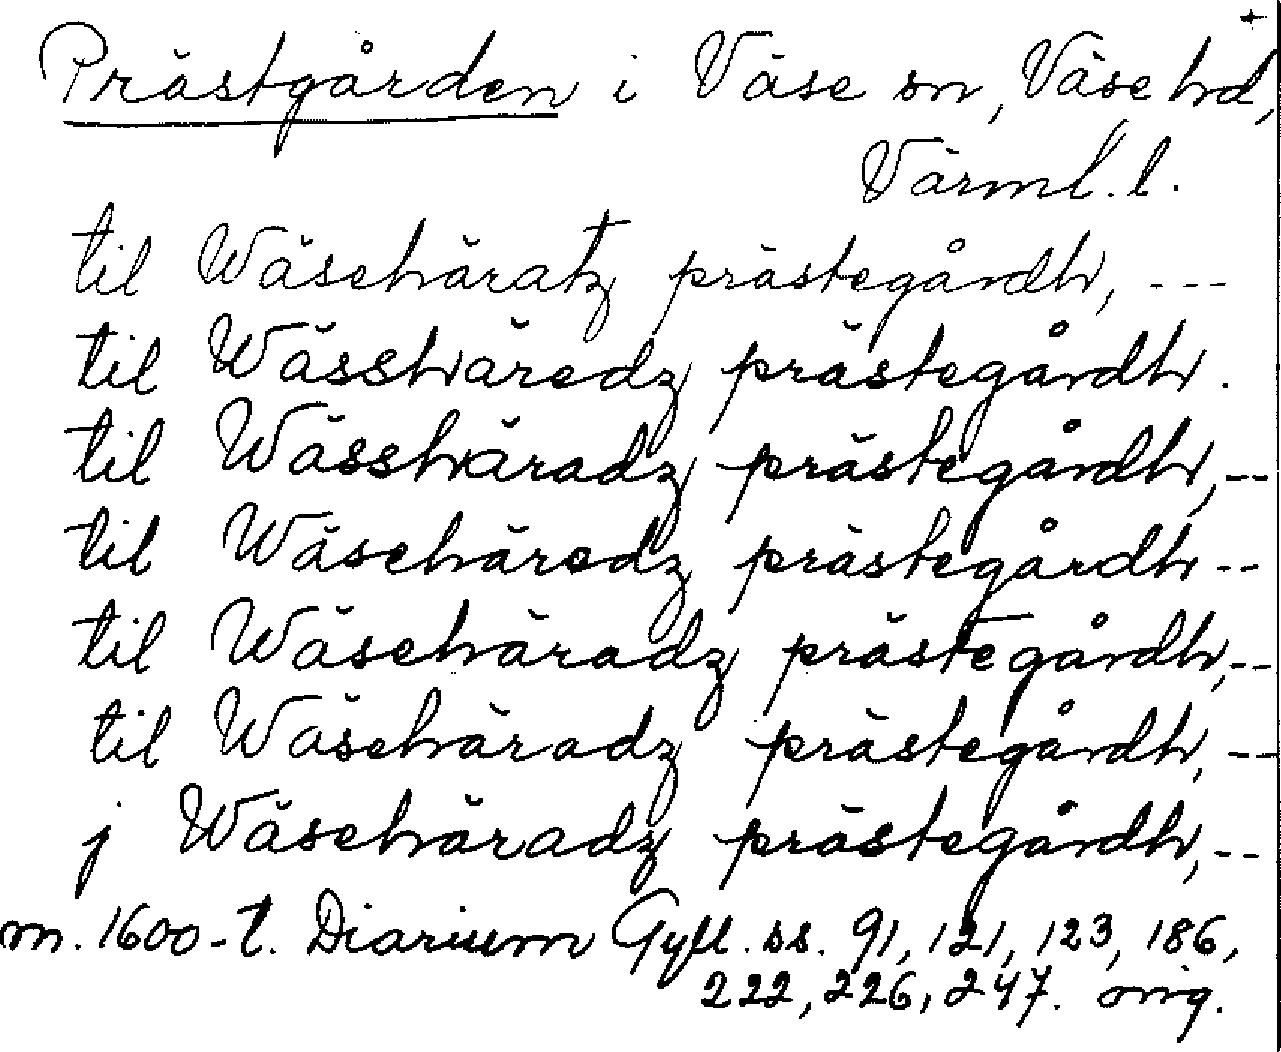 +
Prästgården i Väse sn, Väse hd,
Värml. l.
til Wäsehäratz prästegårdh, ---
til Wässhäredz prästegårdh.
til Wässhäradz prästegårdh, --
til Wäsehäredz prästegårdh --
til Wäsehäradz prästegårdh, --
til Wäsehäradz prästegårdh, --
j Wäsehäradz prästegårdh, --
m. 1600-t. Diarium Gyll. ss. 91, 121, 123, 186,
222, 226, 247. orig.